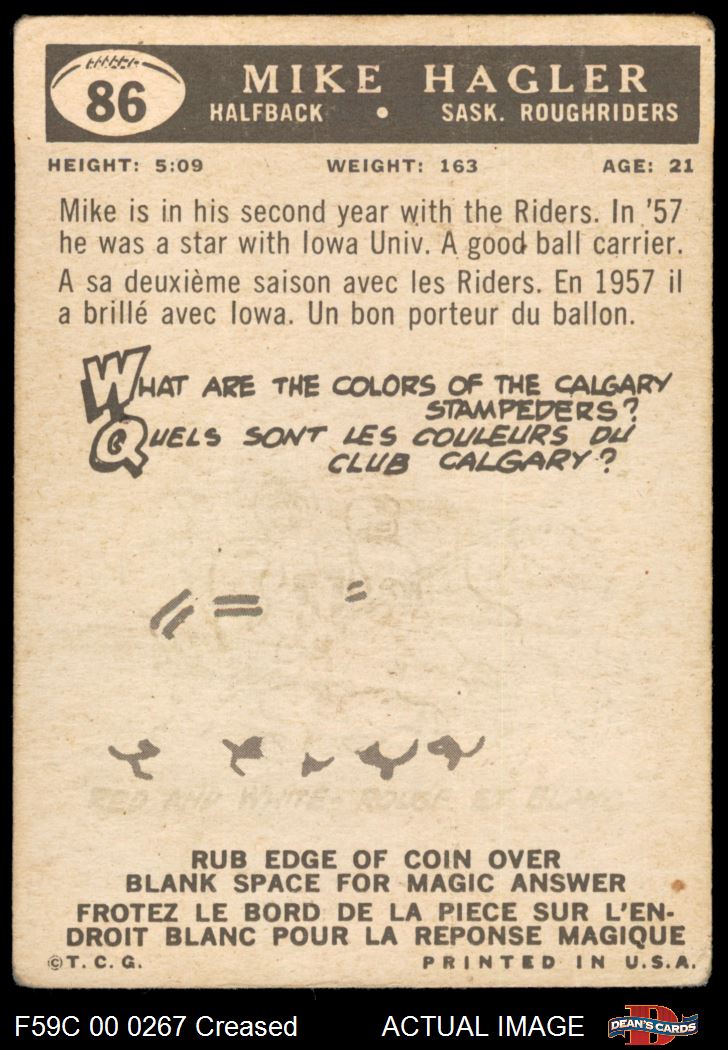 86
MIKE HAGLER
HALFBACK • SASK. ROUGHRIDERS
HEIGHT: 5:09 WEIGHT: 163 AGE: 21
Mike is in his second year with the Riders. In '57
he was a star with Iowa Univ. A good ball carrier.
A sa deuxième saison avec les Riders. En 1957 il
a brillé avec Iowa. Un bon porteur du ballon.
WHAT ARE THE COLORS OF THE CALGARY
STAMPEDERS?
QUELS SONT LES COULEURS DU
CLUB CALGARY?
RED AND WHITE- ROUGE ET BLANC
RUB EDGE OF COIN OVER
BLANK SPACE FOR MAGIC ANSWER
FROTEZ LE BORD DE LA PIECE SUR L'EN-
DROIT BLANC POUR LA REPONSE MAGIQUE
©T.C.G. PRINTED IN U.S.A.
F59C 00 0267 Creased ACTUAL IMAGE DEAN'S CARDS